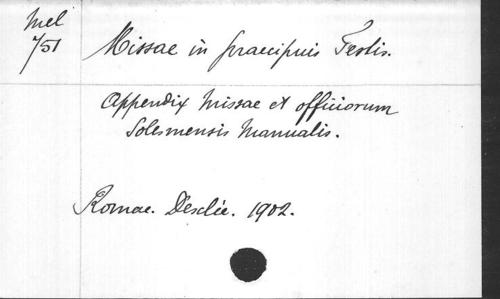 Mel
7/51
Missae in praecipuis Festis.
Appendix Missae et officiorum
Solesmensis Manualis.
Romae. Desclée. 1902.